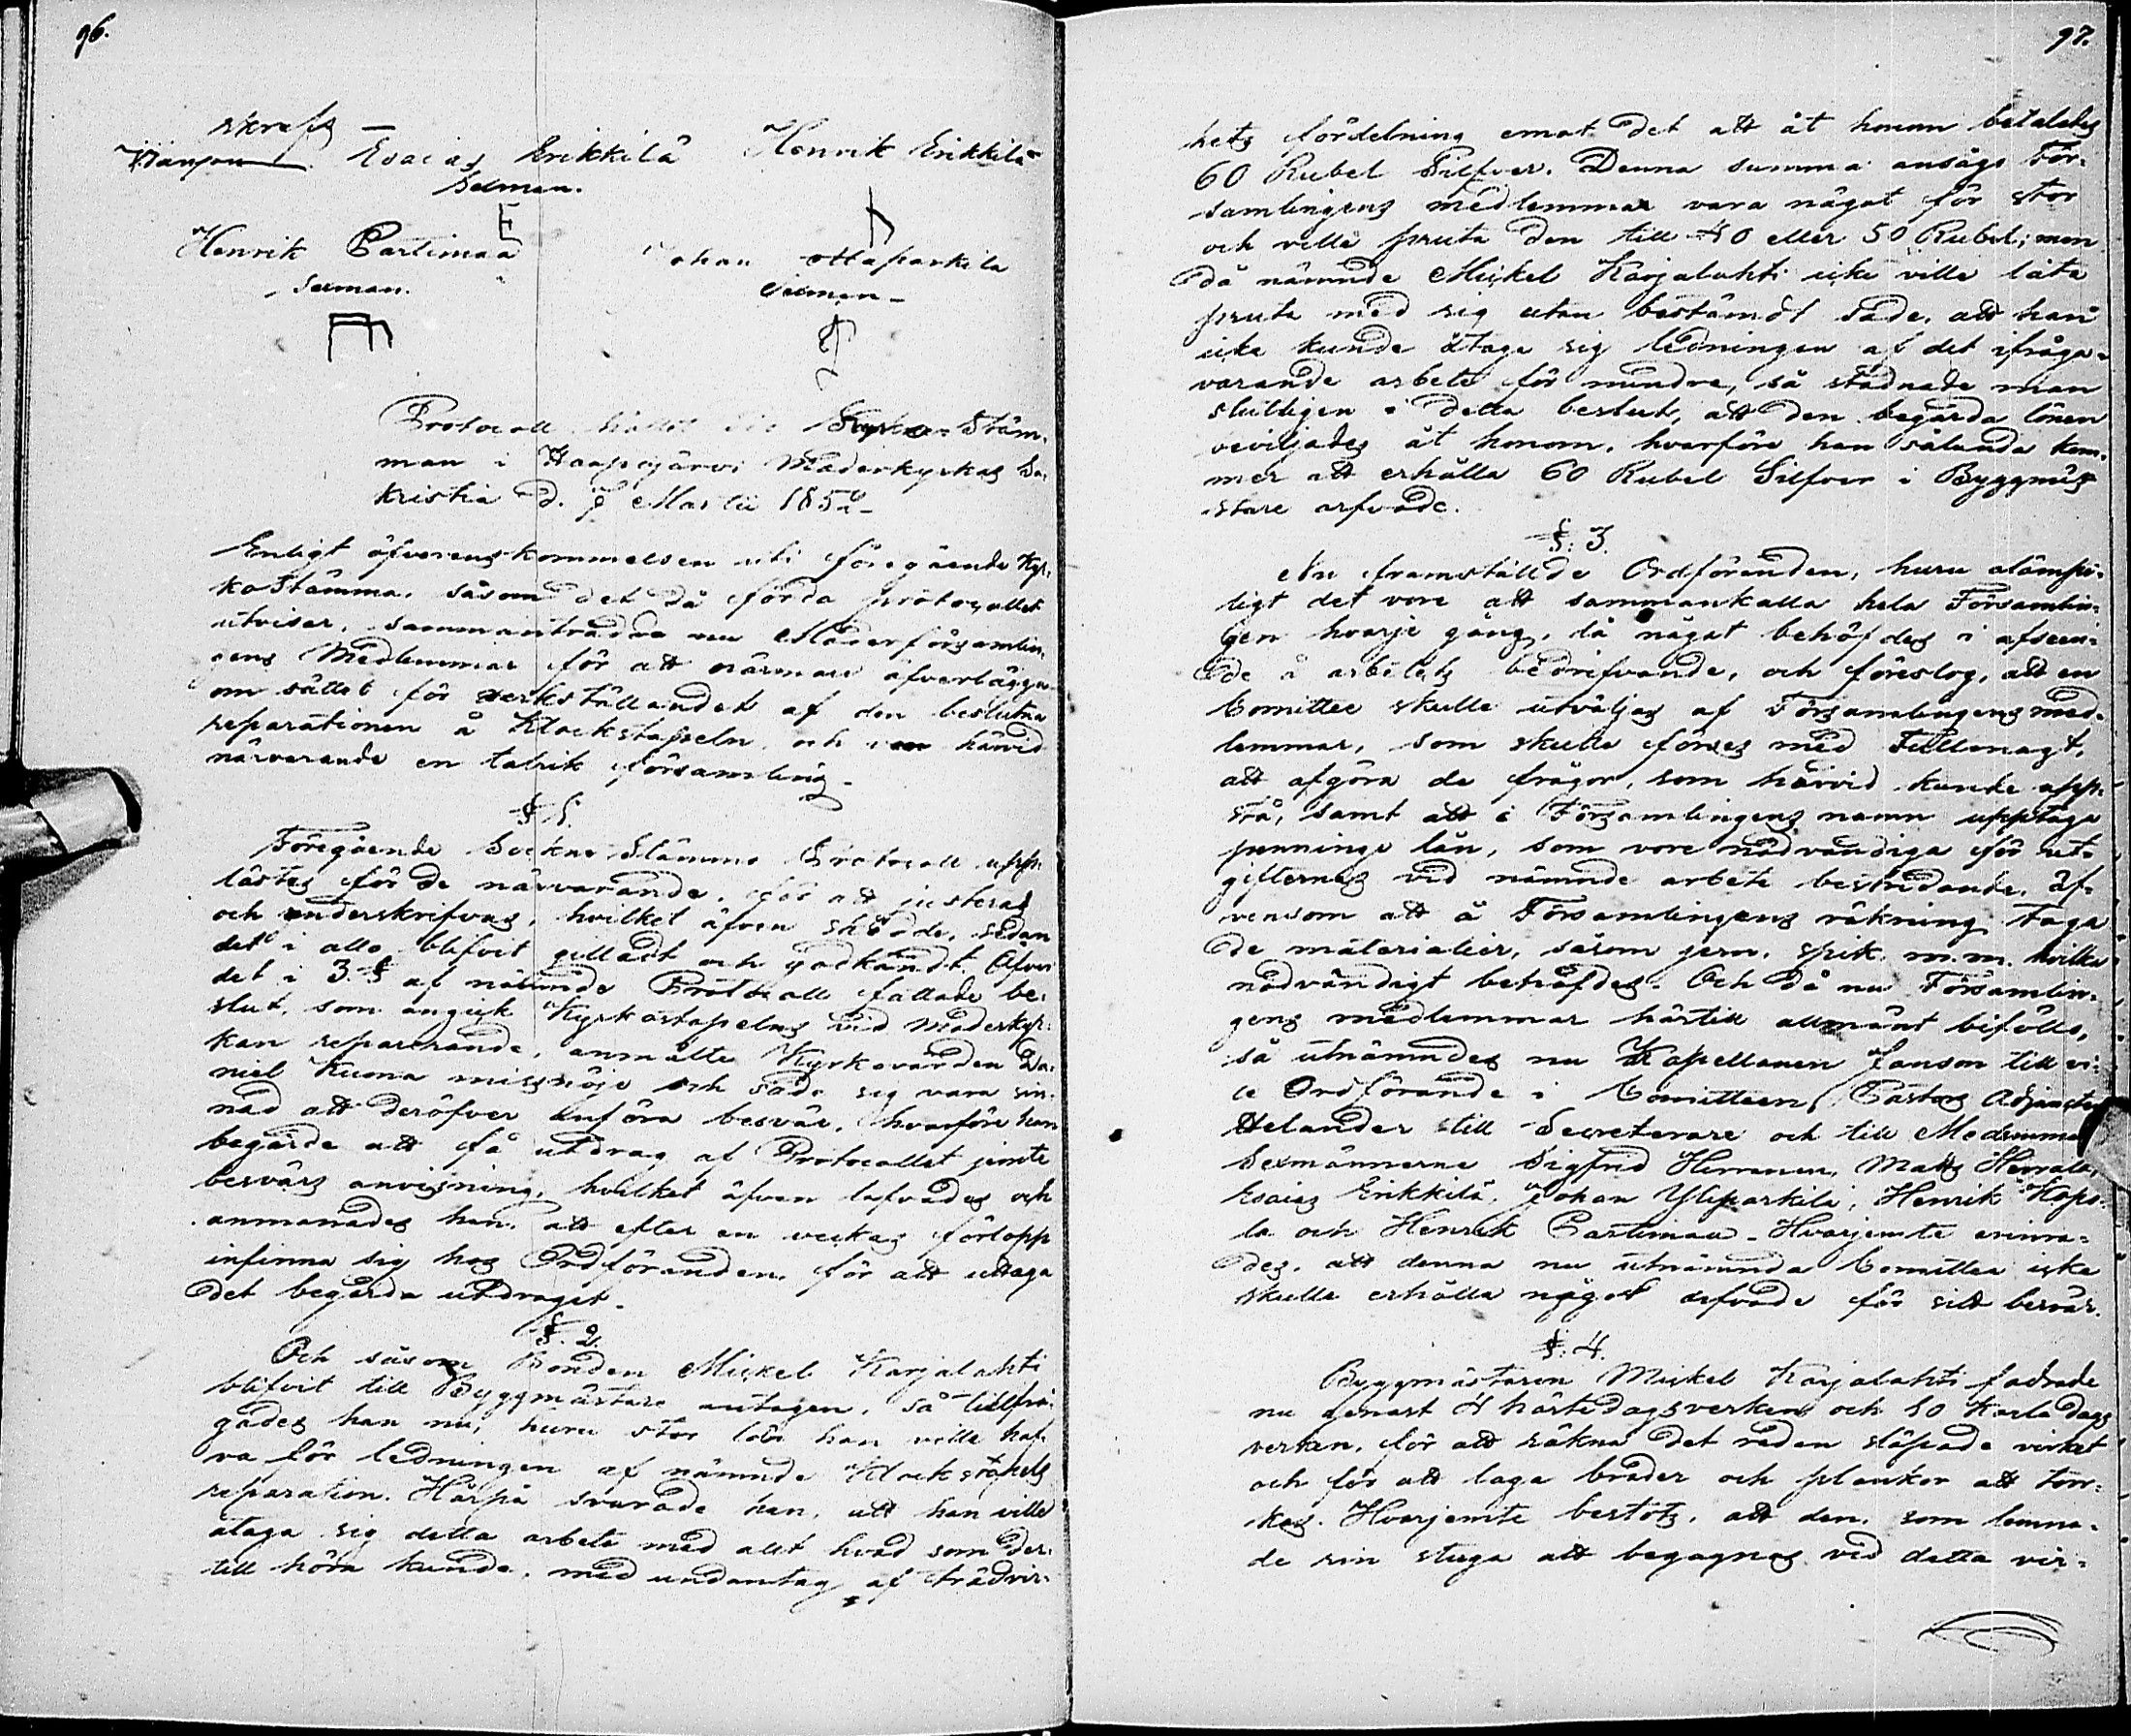 96.
skrefs
Esaias Erikkilä Henrik Erikkilä
Sexman.
Henrik Partimaa Johan Ottaparkila
Sexman. Sexman
Protocoll hållet vid Kyrko-Stäm-
man i Haapajärvi Moderkyrkas Sa-
kristia d. 7 Martii 1852
Enligt öfverenskommelsen uti föregående Kyr-
koStämma, såsom det då förda protocollet
utvisar, sammanträdde nu Moderförsamlin-
gens Medlemmar för att närmare öfverlägga
om sättet för verkställandet af den beslutna
reparationen å Klockstapeln och var härvid
närvarande en talrik församling.
§ 1.
Föregående Sockne Stämmo Protocoll upp-
lästes för de närvarande, för att justeras
och underskrifvas, hvilket äfven skedde, sedan
det i allo blifvit gilladt och godkändt. Öfver
det i 3. § af nämnde Protocoll fattade be-
slut, som angick Kyrkostapelns vid Moderkyr-
kan reparerande, anmälte Kyrkovärden Da-
niel Kuona missnöje och sade sig vara sin-
nad att deröfver anföra besvär, hvarföre han
begärde att få utdrag af Protocollet jemte
besvärs anvisning, hvilket äfven lofvades och
anmanades han, att efter en veckas förlopp
infinna sig hos Ordföranden, för att uttaga
det begärda utdraget.
§. 2.
Och såsom Bonden Mickel Karjalahti
blifvit till Byggmästare antagen, så tillfrå-
gades han nu, huru stor lön han ville haf-
va för ledningen af nämnde Klockstapels
reparation. Härpå svarade han, att han ville
åtaga sig detta arbete med allt hvad som der-
till höra kunde, med undantag af trädvir-
97.
kets fördelning emot det att åt honom betaltes
60 Rubel Silfver. Denna summa ansågo För-
samlingens medlemmar vara något för stor
och ville pruta den till 40 eller 50 Rubel; men
då nämnde Mickel Karjalahti icke ville låta
pruta med sig utan bestämdt sade, att han
icke kunde åtaga sig ledningen af det ifråga-
varande arbete för mindre, så stadnade man
slutligen i detta beslut, att den begärda lönen
beviljades åt honom, hvarföre han sålunda kom-
mer att erhålla 60 Rubel Silfver i Byggmäs-
stare arfvode.
§. 3.
Nu framställde Ordföranden, huru olämp-
ligt det vore att sammankalla hela Församlin-
gen hvarje gång, då något behöfdes i afseen-
de å arbetets bedrifvande, och föreslog, att en
Comittee skulle utväljas af Församlingens med-
lemmar, som skulle förses med Fullmagt,
att afgöra de frågor, som härvid kunde upp-
stå, samt att i Församlingens namn upptaga
penninge lån, som vore nödvändiga för ut-
gifternas vid nämnde arbete bestridande, äf-
vensom att å Församlingens räkning taga
de materialier, såsom jern, spik, m.m. hvilka
nödvändigt behöfdes. Och då nu Församlin-
gens medlemmar härtill allmänt biföllo,
så utnämndes nu Kapellanen Janson till vi-
ce Ordförande i Comitteen, Pastors Adjuncten
Helander till Secreterare och till Medlemmar
Sexmännerne Sigfrid Hermanen, Matts Herrala,
Esaias Erikkilä, Johan Yliparkila, Henrik Kopo-
la och Henrik Partimaa. Hvarjemte erinra-
des, att denna nu utnämnda Comittee icke
skulle erhålla något arfvode för sitt besvär.
§. 4.
Byggmästaren Mickel Karjalahti fordrade
nu genast 4 hästedagsverken och 50 Karledags
verken, för att räkna det redan släpade virket
och för att laga bräder och plankor att tor-
kas. Hvarjemte bestöts, att den, som lemna-
de sin stuga att begagnas vid detta vir-